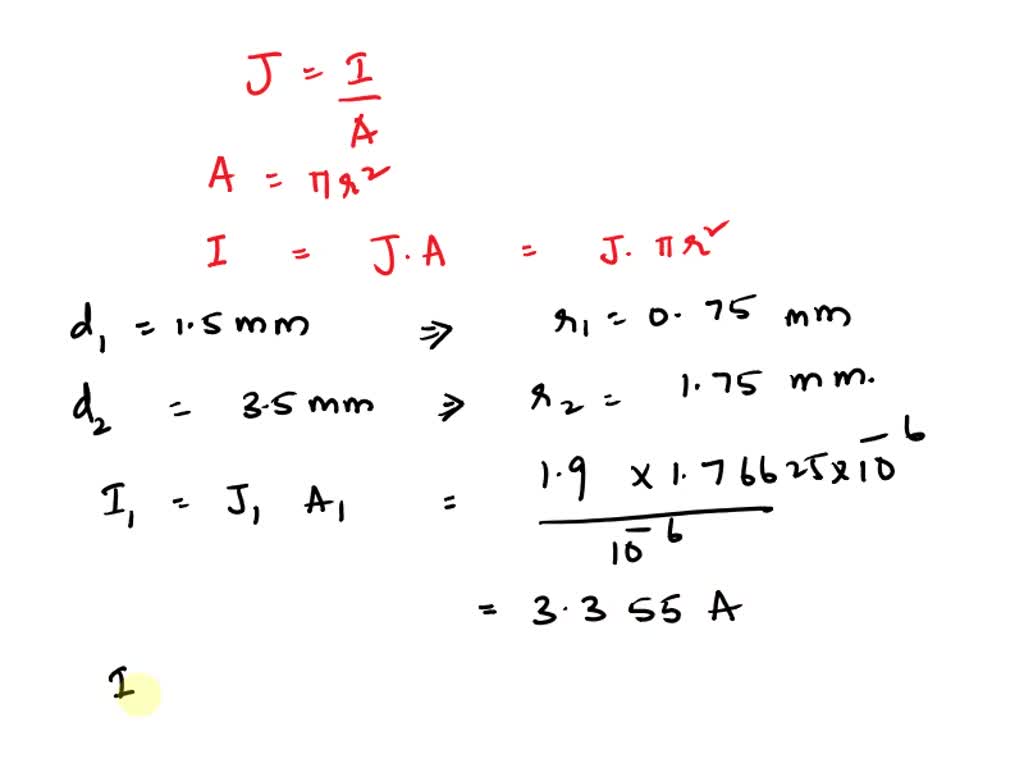 J = I
A
A = πr²
I = J.A = J.πr²
d₁ = 1.5 mm ⇒ r₁ = 0.75 mm
d₂ = 3.5 mm ⇒ r₂ = 1.75 mm.
I₁ = J₁ A₁ = 1.9 × 1.76625 × 10⁻⁶
10⁻⁶
= 3.355 A
I